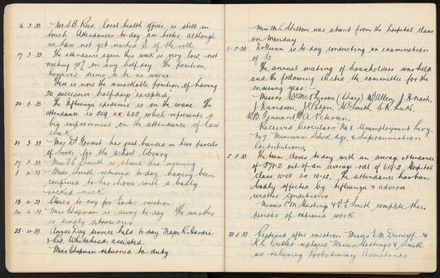 16. 3. 33 Mr. S. B. Rice, local health officer, is still in
touch. Attendances to-day are better although
we have not yet reached ¾ of the roll.
17. 3. 33 The attendance again this week is very low not
reaching 70% in any half day. The position,
however, seems to be no worse.
There is now the remarkable position of having
30 successive half days excepted.
The Influenza epidemic is on the wane. The
attendance is 509 ex. 625 which represents a
big improvement on the attendance of last
week.
Mr. has just handed in two parcels
of books for the school library.
Miss Smith is absent this morning
Miss Smith returned to-day having been
confined to her home with a badly
neck.
Closes to-day for Easter vacation.
Miss Chapman is away to-day. The weather
is simply atrocious
Anzac Day service held to-day. Major R. Hardie
& Rev. Whitehead assisted.
Miss Chapman returned to duty.
Miss M. L. Skelton was absent from the hospital class
on Monday.
1-5-33 is to-day conducting an examination
of
The annual meeting of householders was held
and the following elected the committee for the
ensuing year.
Messrs. (Chair) W. Allen, J. H. Nash,
J. Davidson, J. Paton, W. Smith, G. R. Luke,
W. D. & A. Peterson.
Received Circulars No. 8 Unemployment Levy,
No. 9 Minimum School Age, & Superannuation
Contributions.
5.5.33 The term closes to-day with an average attendance
of 579.3 out of an average roll of 618.2. Hospital
class 10.15 ex 10.12. The attendance has been
badly affected by Influenza & adverse
weather conditions
Messrs. F. M. Hastings & C. E. Smith complete their
periods of relieving work
22.5.33 Reopened after vacation. Messrs. E. M. &
R. L. Cutler replace Messrs. Hastings & Smith
as relieving Probationary Assistants